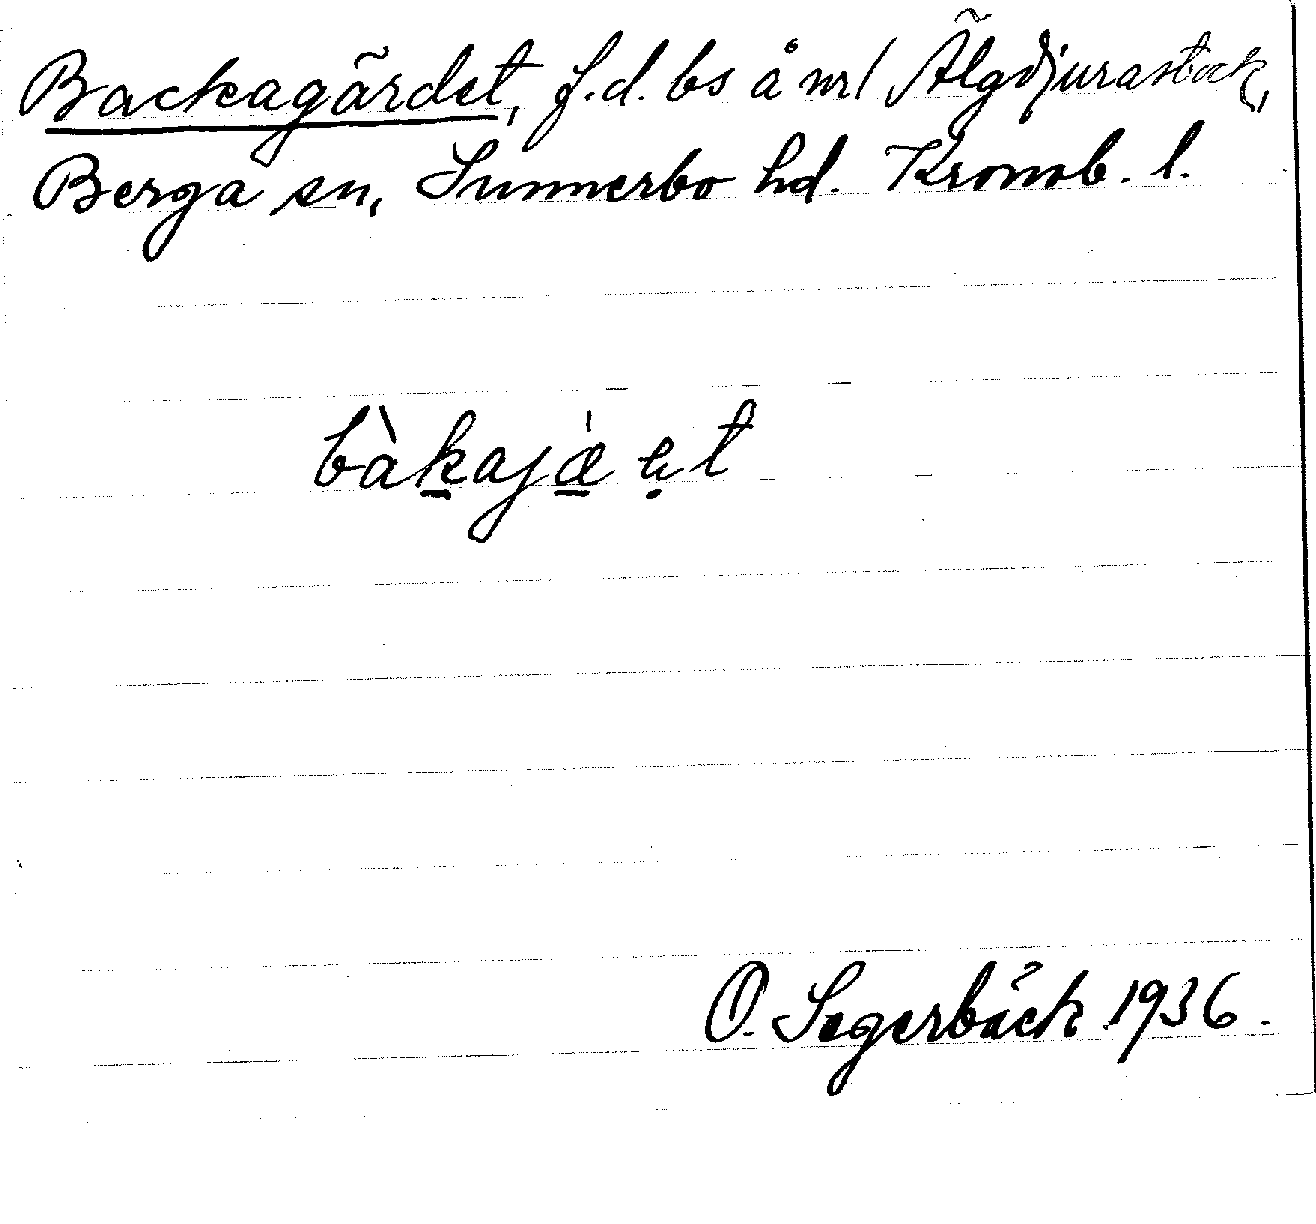 Backagärdet, f.d. bs å nr 1 Älgdjurastock,
Berga sn, Sunnerbo hd. Kronob. l.
bàkajæ̀ et
O. Segerbäck 1936.